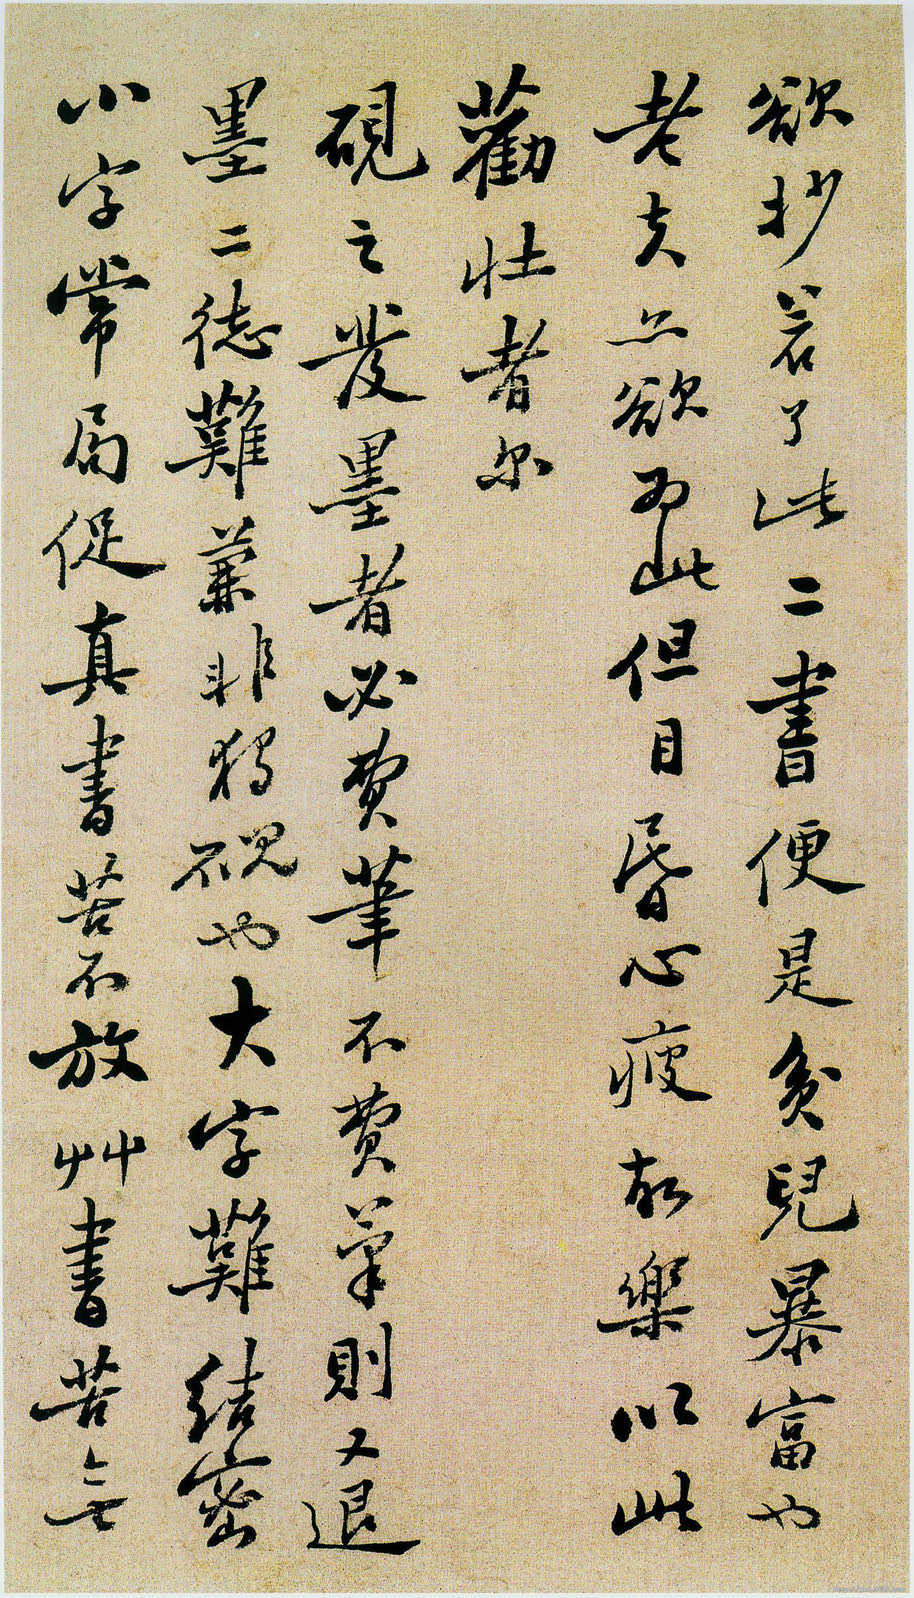 欲抄若了此二書便是貧兒暴富也
老夫亦欲為此但目昏心疲故樂以此
勸壯者尓
硯之發墨者必費筆不費筆則又退
墨二德難兼非獨硯也大字難結密
小字常局促真書苦不放艸書苦無